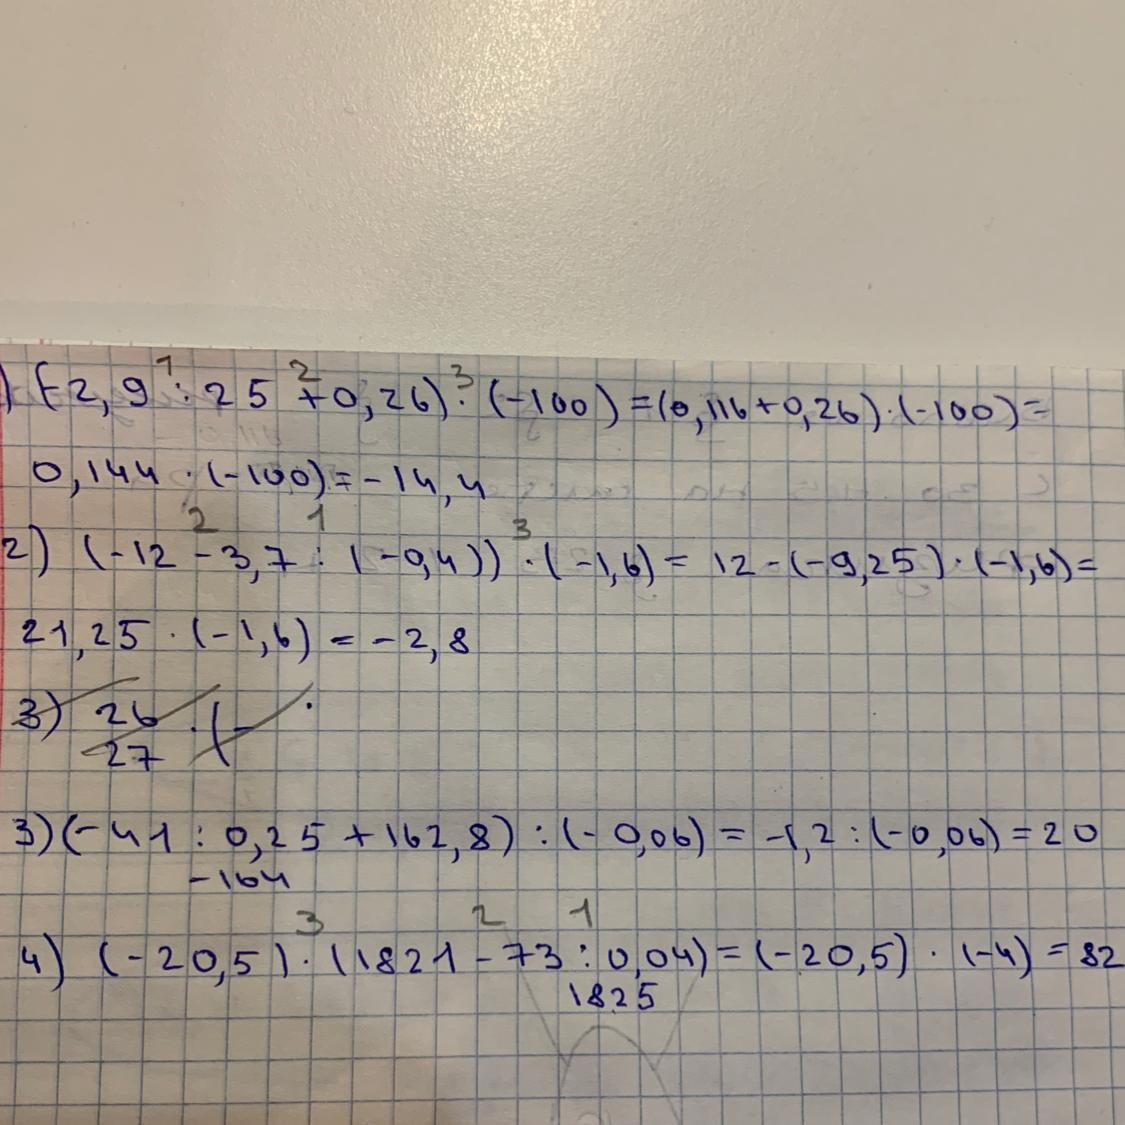 1 2 3
) (-2,9 : 25 + 0,26) · (-100) = (0,116 + 0,26) · (-100) =
0,144 · (-100) = -14,4
2 1 3
2) (-12 - 3,7 : (-0,4)) · (-1,6) = 12 - (-9,25) · (-1,6) =
21,25 · (-1,6) = -2,8
3) 26/27 · (-
3) (-41 : 0,25 + 162,8) : (-0,06) = -1,2 : (-0,06) = 20
-164
3 2 1
4) (-20,5) · (1821 - 73 : 0,04) = (-20,5) · (-4) = 82
1825